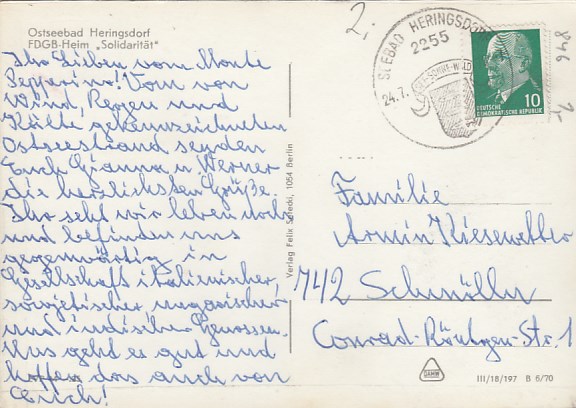 Ostseebad Heringsdorf
FDGB-Heim „Solidarität"
Ihr Lieben vom Monte
Pepperino! Vom von
Wind, Regen und
Kälte gekennzeichneten
Ostseestrand senden
Euch Gianna u. Werner
die herzlichsten Grüße.
Ihr seht wir leben noch
und befinden uns
gegenwärtig in
Gesellschaft italienischer,
sowjetischer ungarischer
und indischer Genossen.
Uns geht es gut und
hoffen das auch von
Euch!
Verlag Felix Setecki, 1054 Berlin
2,-
SEEBAD HERINGSDORF
2255
24.7.
SEE-SONNE-WALD
DEUTSCHE
DEMOKRATISCHE REPUBLIK
10
846
1,-
Familie
Armin Kiesewetter
742 Schmölln
Conrad-Röntgen-Str. 1
III/18/197 B 6/70